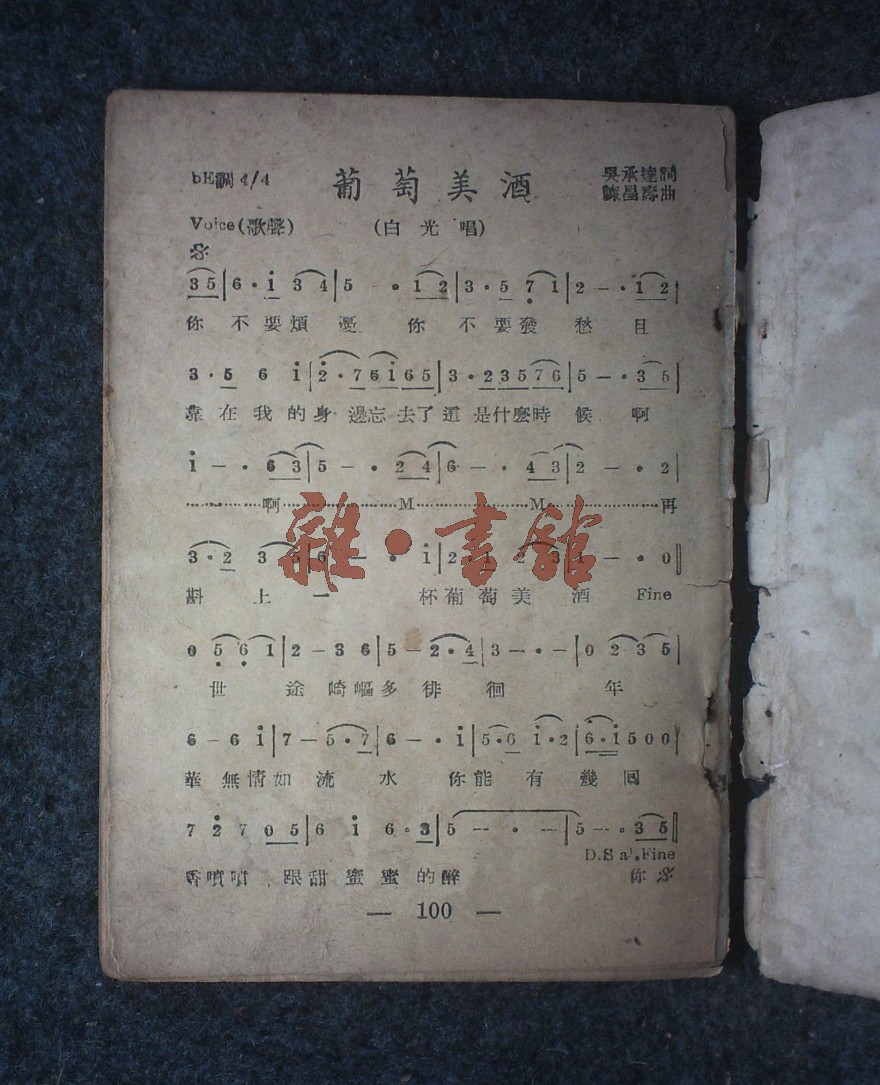 bE調 4/4
葡萄美酒
吳承達詞
陳昌壽曲
Voice(歌聲)
(白光唱)
3 5|6·i 3 4|5 - ·1 2|3·5 7 1|2 - ·i 2|
你不要煩憂 你不要發愁 且
3·5 6 i|2·7 6 i 6 5|3·2 3 5 7 6|5 - ·3 5|
靠在我的身邊忘去了這是什麼時候 啊
i - ·6 3|5 - ·2 4|6 - ·4 3|2 - ·2|
啊 M M 再
3·2 3
斟上一 杯葡萄美酒 Fine
0 5 6 1|2 - 3 6|5 - 2·4|3 - · -|0 2 3 5|
世途崎嶇多徘徊 年
6 - 6 i|7 - 5·7|6 - ·i|5·6 i·2|6·i 5 0 0|
華無情如流水 你能有幾回
7 2 7 0 5|6 i 6·3|5 - · -|5 - ·3 5‖
D.S al Fine
香噴噴 跟甜蜜蜜的醉 你
— 100 —
雜·書館